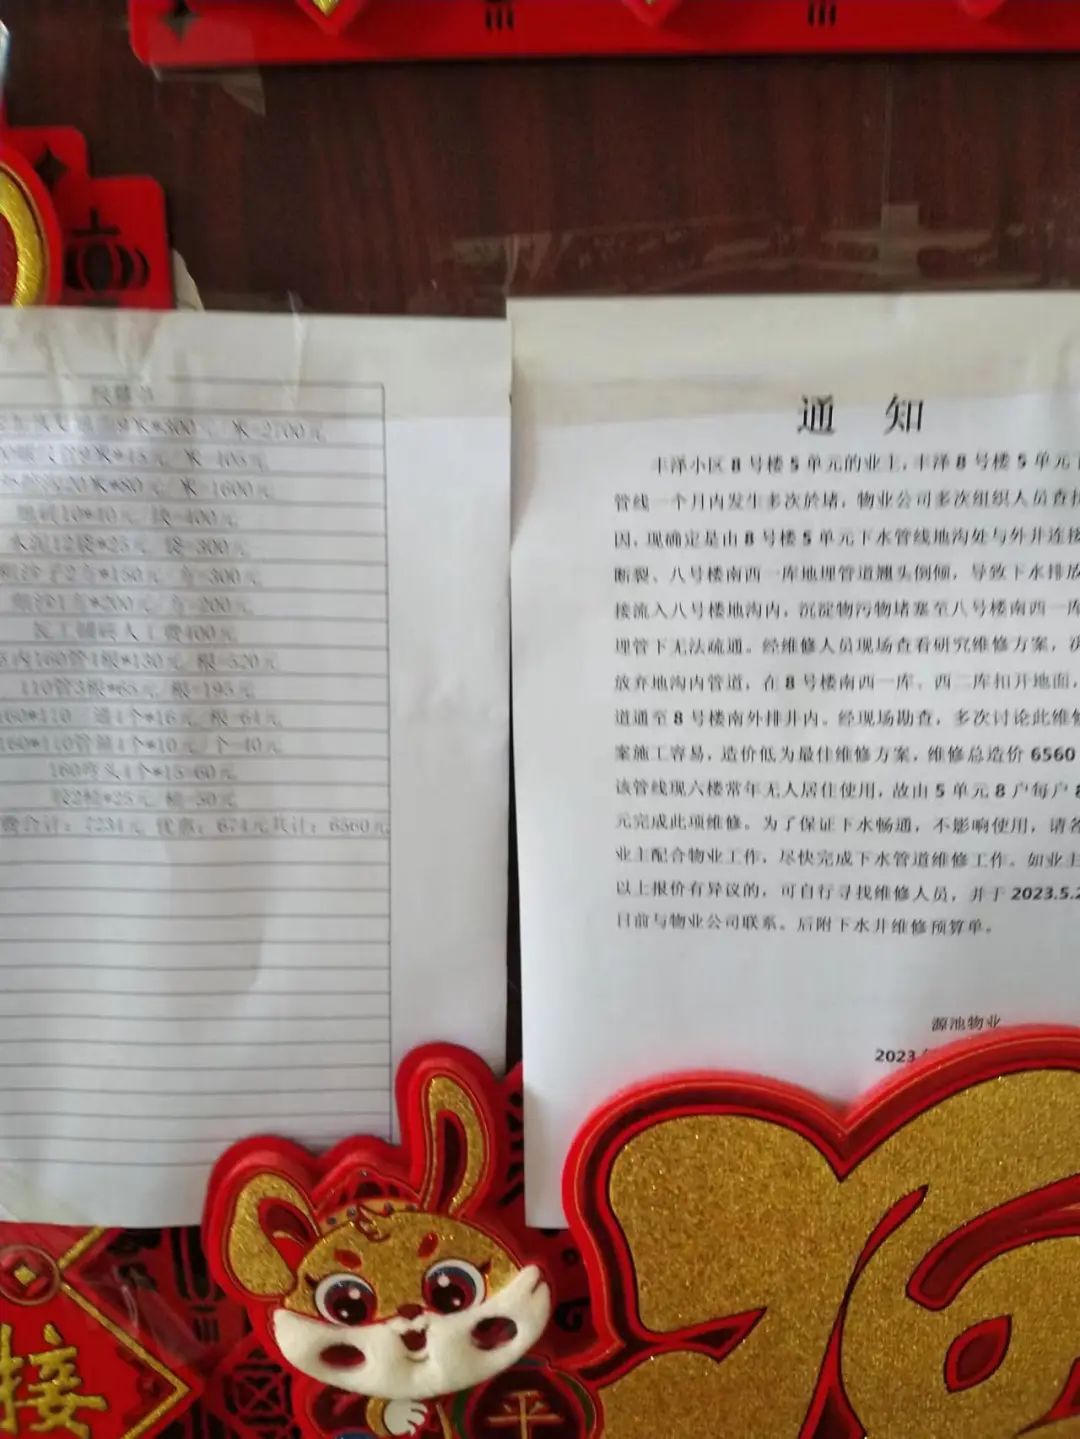 预算书
米*300元/米=2700元
9米*45元/米=405元
20米*80元/米=1600元
地砖10*40元/块=400元
水泥12袋*25元/袋=300元
粗沙子2方*150元/方=300元
细沙1方*200元/方=200元
瓦工铺砖人工费400元
内160管4根*130元/根=520元
110管3根*65元/根=195元
160*110三通4个*16元/根=64元
160*110管箍4个*10元/个=40元
160弯头4个*15=60元
胶2桶*25元/桶=50元
费合计：7234元 优惠：674元共计：6560元
通 知
丰泽小区8号楼5单元的业主，丰泽8号楼5单元
管线一个月内发生多次於堵，物业公司多次组织人员查找
因，现确定是由8号楼5单元下水管线地沟处与外井连接
断裂、八号楼南西一库地埋管道翘头倒倾，导致下水排放
接流入八号楼地沟内，沉淀物污物堵塞至八号楼南西一库
埋管下无法疏通。经维修人员现场查看研究维修方案，决
放弃地沟内管道，在8号楼南西一库、西二库扣开地面，
道通至8号楼南外排井内。经现场勘查，多次讨论此维修
案施工容易，造价低为最佳维修方案，维修总造价6560
该管线现六楼常年无人居住使用，故由5单元8户每户8
元完成此项维修。为了保证下水畅通，不影响使用，请各
业主配合物业工作，尽快完成下水管道维修工作。如业主
以上报价有异议的，可自行寻找维修人员，并于2023.5.2
日前与物业公司联系。后附下水井维修预算单。
源池物业
2023
接
平